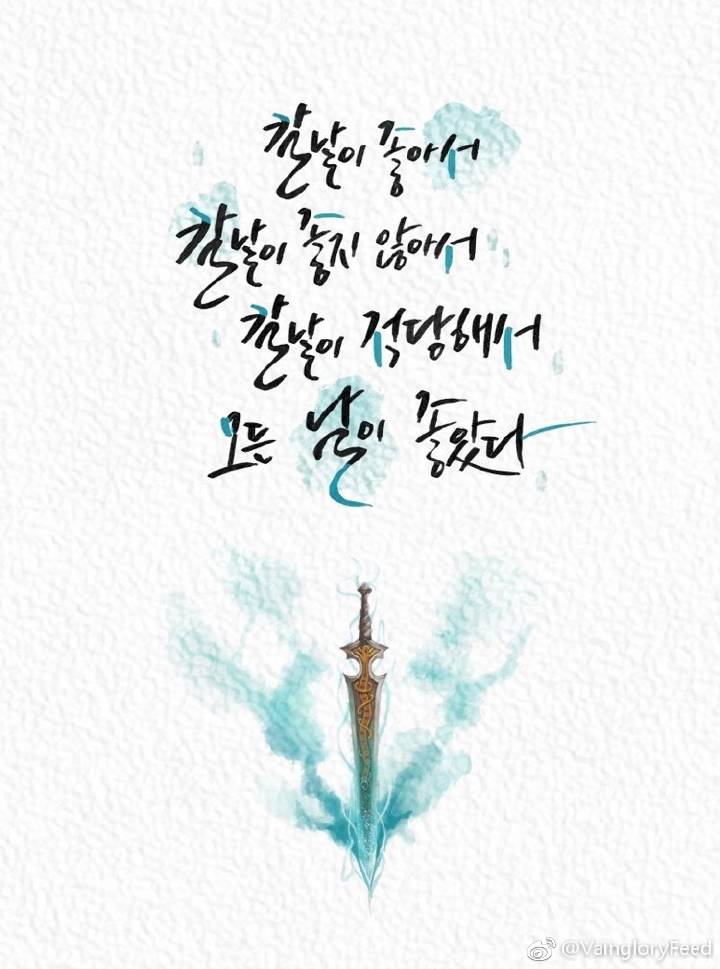 칼날이 좋아서
칼날이 좋지 않아서
칼날이 적당해서
모든 날이 좋았다
@VaingloryFeed